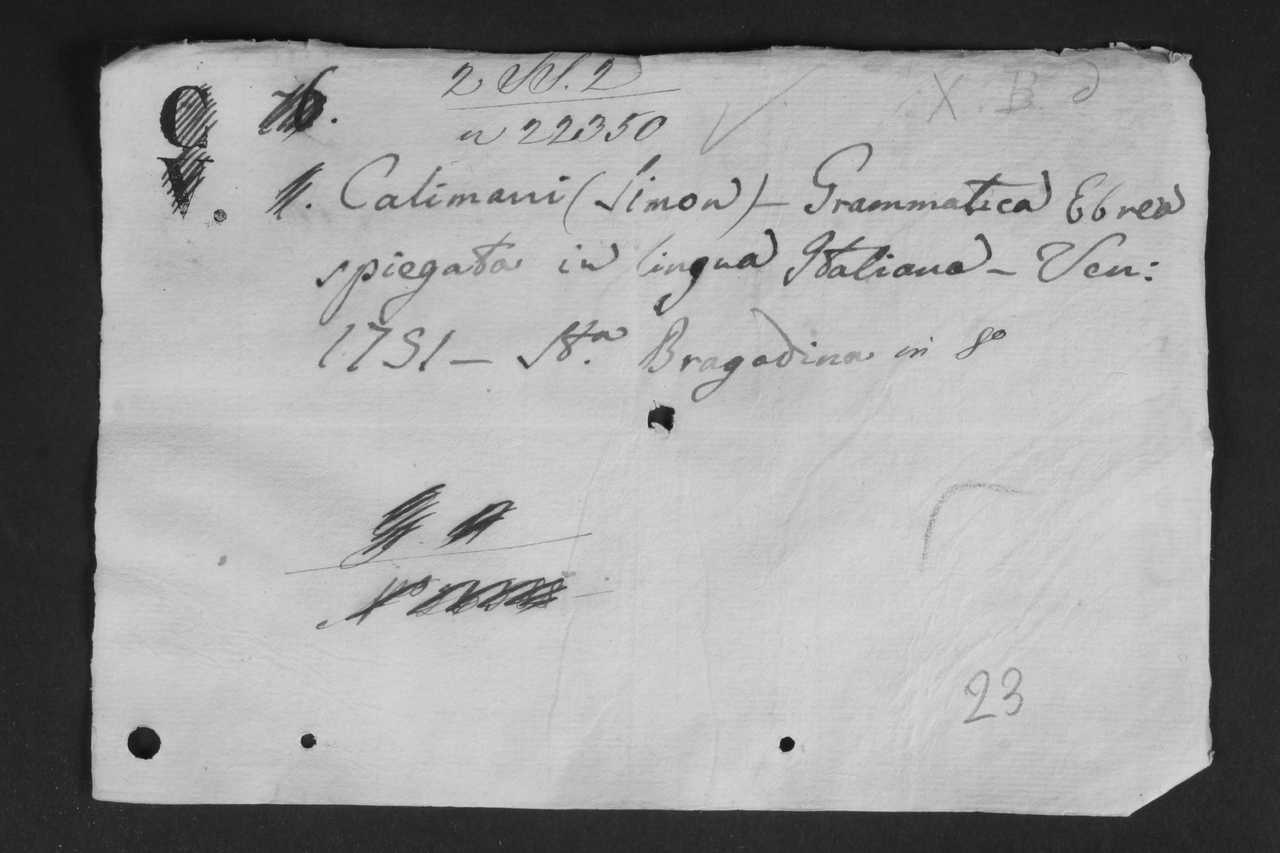 X B d
n 22350
Calimani (Simon) – Grammatica Ebrea
spiegata in lingua Italiana – Ven:
1751 – Sta. Bragadina in 8o
23